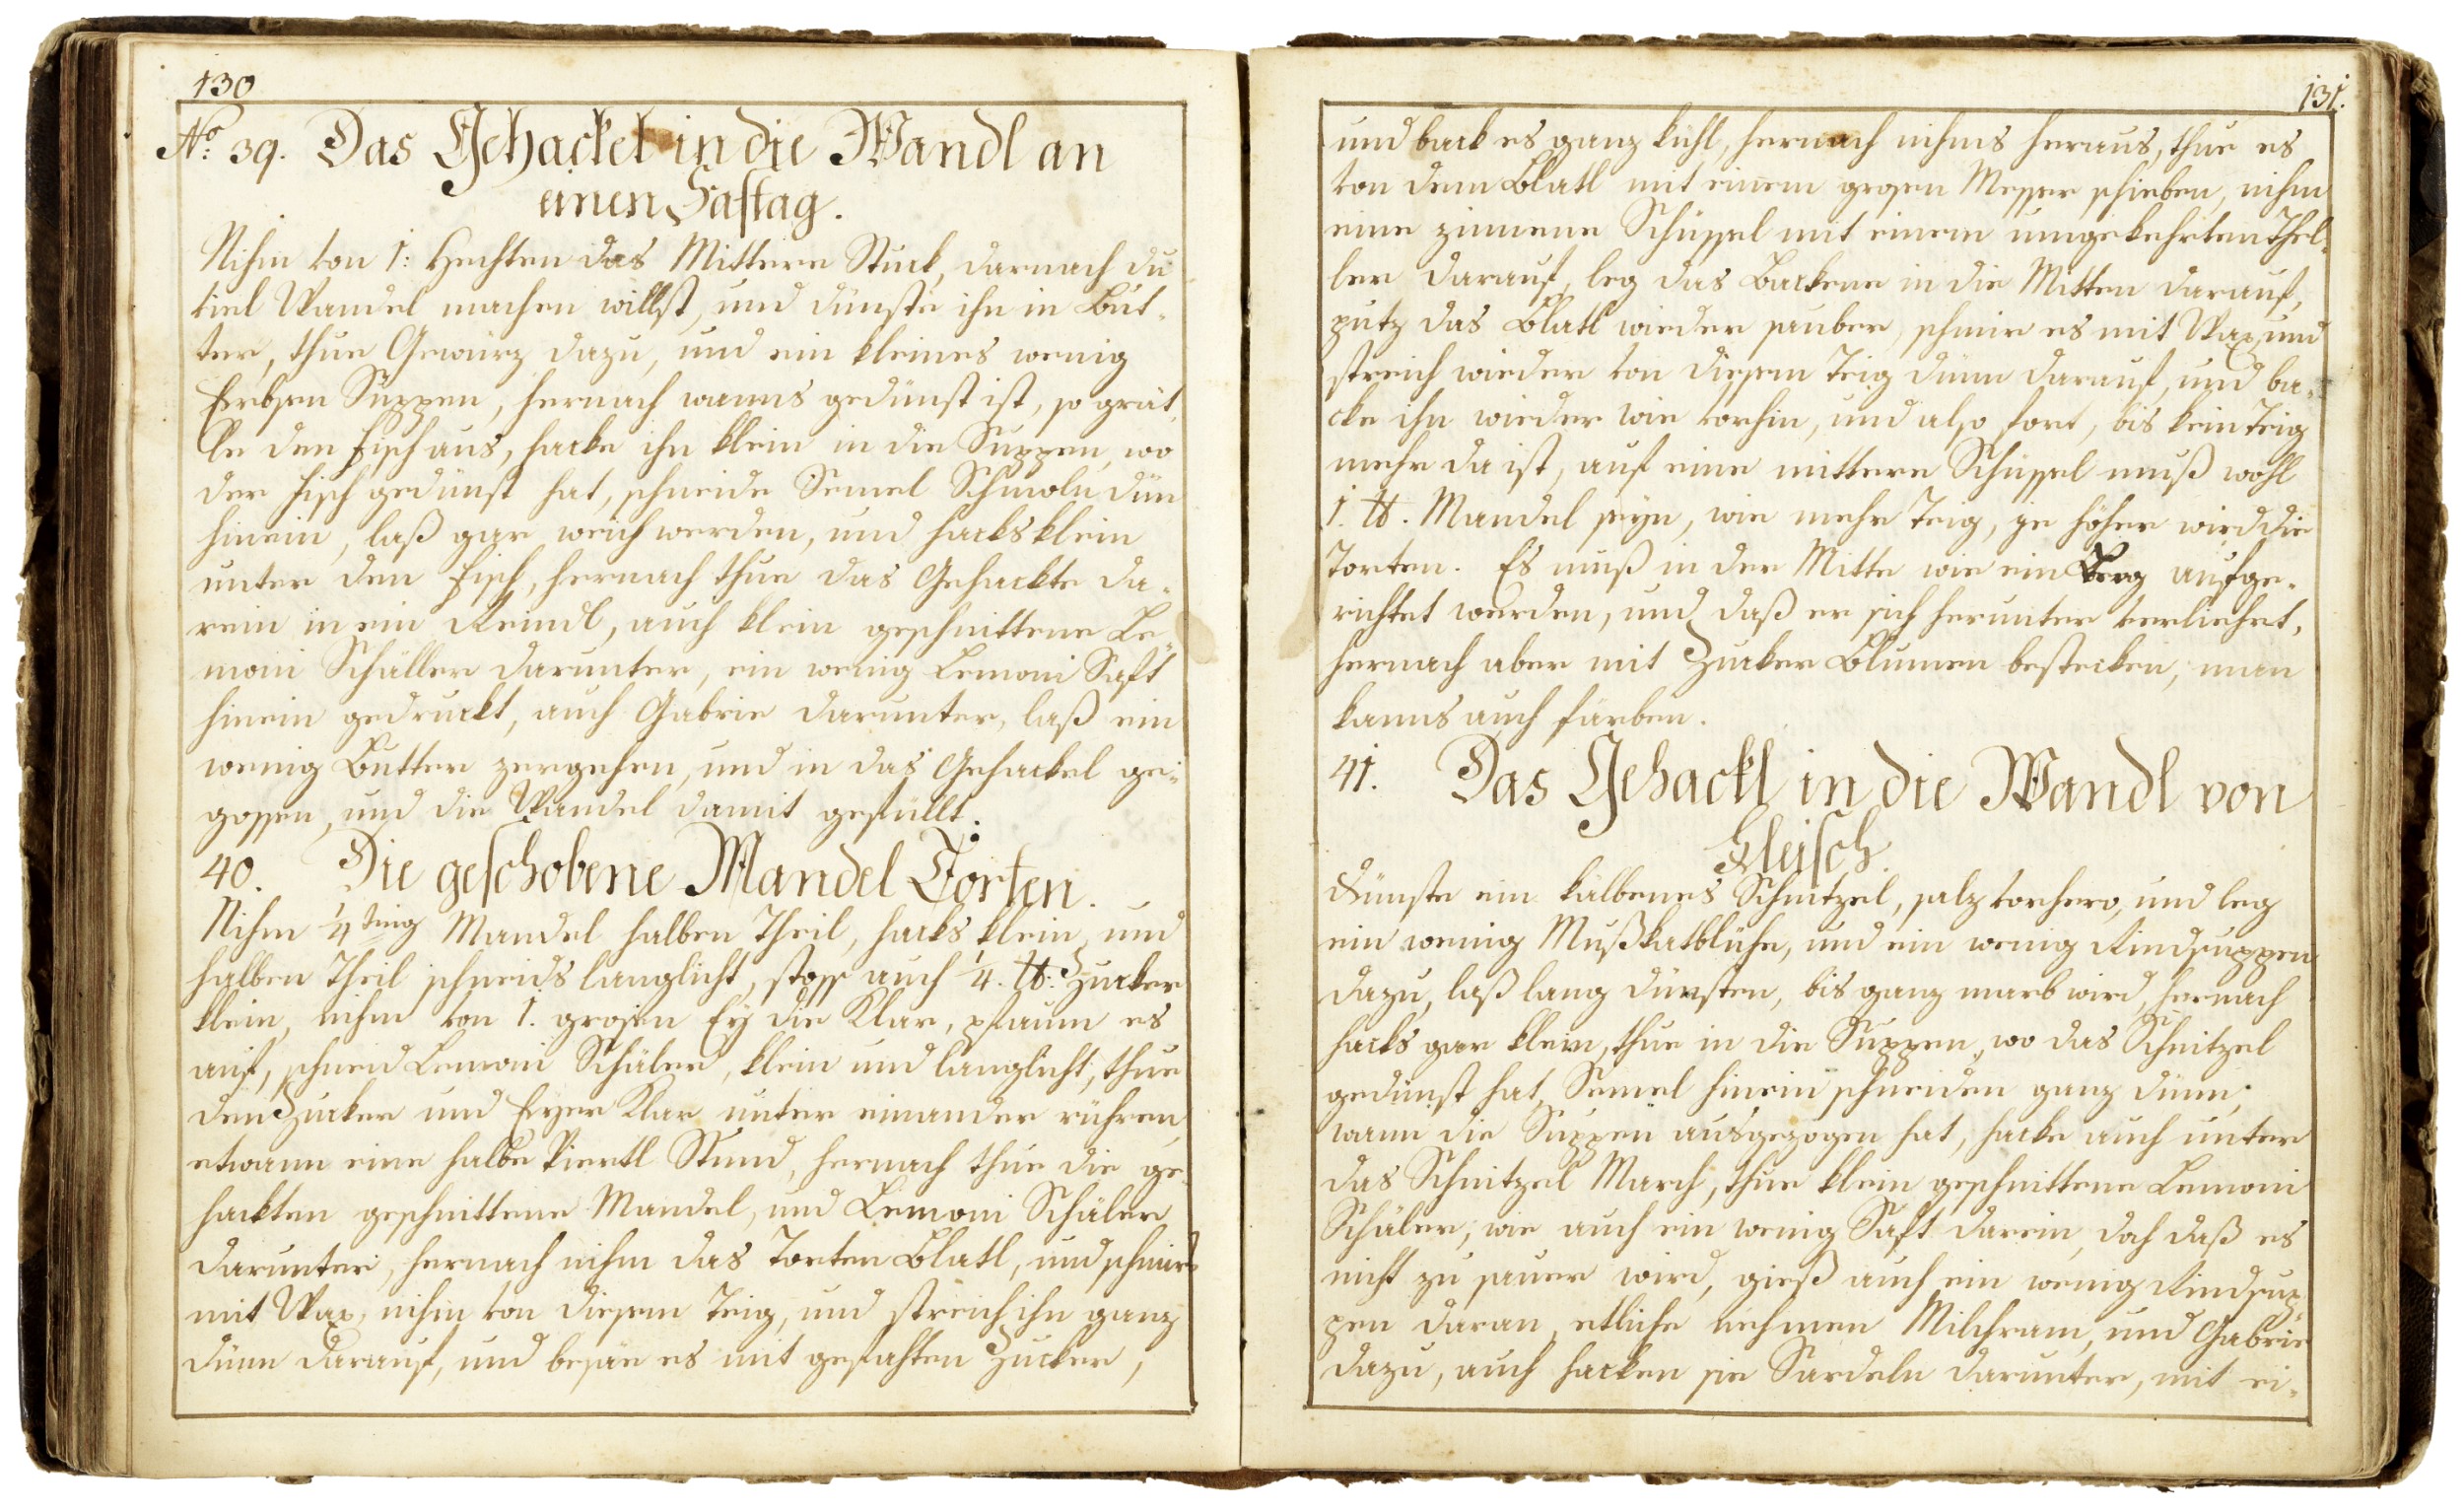 130
No: 39. Das Gehackel in die Wandl an
einen Fastag.
Nihm von 1: Hechten das Mittere Stuck, darnach du
viel Wandel machen willst, und dünste ihn in But-
ter, thue Gewürz dazu, und ein kleines wenig
Erbsen Suppen, hernach wanns gedünst ist, so grät-
le den Fisch aus, hacke ihn klein in die Suppen, wo
der Fisch gedünst hat, schneide Semel Schmoln dün
hinein, laß gar weich werden, und hacks klein
unter den Fisch, hernach thue das Gehackte da-
rein in ein Reindl, auch klein geschnittene Le-
moni Schäller darunter, ein wenig Lemoni Saft
hinein gedruckt, auch Gabrie darunter, laß ein
wenig Butter zergehen, und in das Gehackel ge-
gossen, und die Wandel damit gefüllt.
40. Die geschobene Mandel Torten.
Nihm 1/4 ting Mandel halben Theil, hacks klein, und
halben Theil schneids langlicht, stoss auch 1/4. ℔. Zucker
klein, nihm von 1. grosen Ey die Klar, pfaum es
auf, schneid Lemoni Schäler, klein und langlicht, thue
den Zucker und Eyer Klar unter einander rühren,
etwann eine halbe Viertl Stund, hernach thue die ge-
hackten geschnittene Mandel, und Lemoni Schäler
darunter, hernach nihm das Torten Blatl, und schmirs
mit Wax, nihm von diesem Teig, und streich ihn ganz
dünn darauf, und besäe es mit gefahten Zucker,
131.
und back es ganz kühl, hernach nihms heraus, thue es
von dem Blatl mit einem grosen Messer schieben, nihm
eine zinnene Schüssel mit einem umgekehrten Thel-
ler darauf, leg das Backene in die Mitten darauf,
putz das Blatl wieder sauber, schmir es mit Wax, und
streich wieder von diesem Teig dünn darauf, und ba-
cke ihn wieder wie vorhin, und also fort, bis kein Teig
mehr da ist, auf eine mittere Schüssel muß wohl
1. ℔. Mandel seyn, wie mehr Teig, je höher wird die
Torten. Es muß in der Mitte wie ein Berg aufge-
richtet werden, und daß er sich herunter verliehrt,
hernach aber mit Zucker Blumen bestecken, man
kanns auch färben.
41. Das Gehackl in die Wandl von
Fleisch.
Dünste ein kälbenes Schnitzel, salz vorhero, und leg
ein wenig Mußkatblühe, und ein wenig Rindsuppen
dazu, laß lang dünsten, bis ganz marb wird, hernach
hacks gar klein, thue in die Suppen, wo das Schnitzel
gedünst hat, Semel hinein schneiden ganz dünn,
wann die Suppen ausgezogen hat, hacke auch unter
das Schnitzel March, thue klein geschnittene Lemoni
Schäler, wie auch ein wenig Saft darein, doch daß es
nicht zu sauer wird, gieß auch ein wenig Rindsup-
pen daran, etliche nehmen Milchram, und Gabrie
dazu, auch hacken sie Sardeln darunter, mit ei-